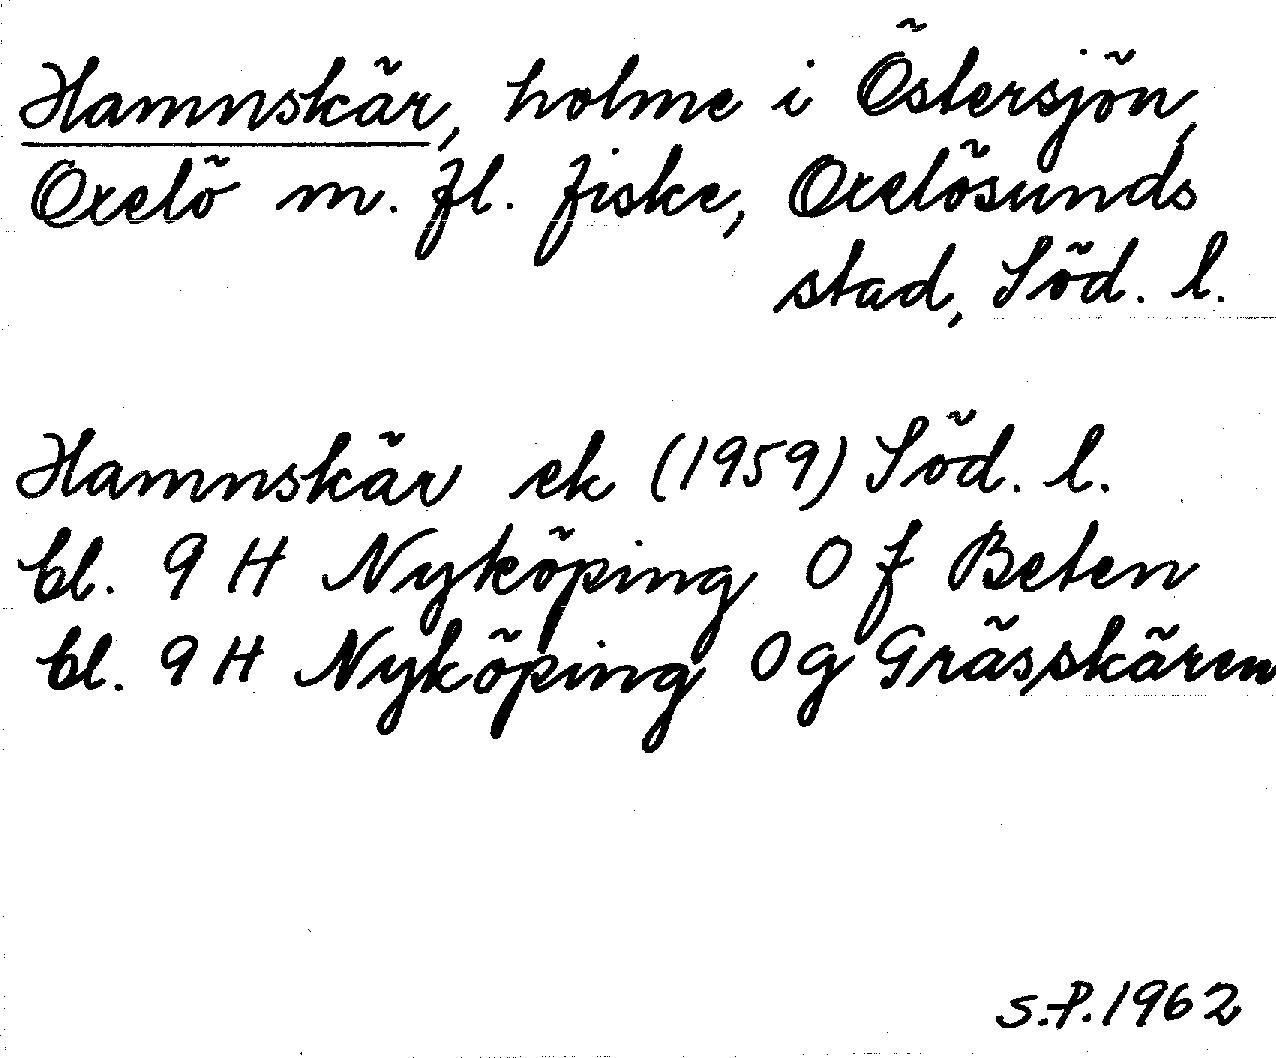 Hamnskär, holme i Östersjön,
Oxelö m. fl. fiske, Oxelösunds
stad, Söd. l.
Hamnskär ek (1959) Söd. l.
bl. 9 H Nyköping 0 f Beten
bl. 9 H Nyköping 0 g Grässkären
S.P. 1962